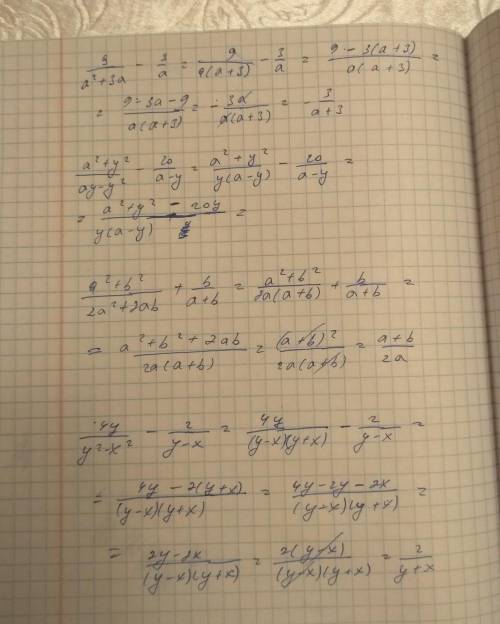 9/(a²+3a) - 3/a = 9/(a(a+3)) - 3/a = (9 - 3(a+3))/(a(a+3)) =
= (9-3a-9)/(a(a+3)) = -3a/(a(a+3)) = -3/(a+3)
(a²+y²)/(ay-y²) - 20/(a-y) = (a²+y²)/(y(a-y)) - 20/(a-y) =
= (a²+y² - 20y)/(y(a-y)) =
(a²+b²)/(2a²+2ab) + b/(a+b) = (a²+b²)/(2a(a+b)) + b/(a+b) =
= (a²+b²+2ab)/(2a(a+b)) = (a+b)²/(2a(a+b)) = (a+b)/2a
4y/(y²-x²) - 2/(y-x) = 4y/((y-x)(y+x)) - 2/(y-x) =
= (4y-2(y+x))/((y-x)(y+x)) = (4y-2y-2x)/((y-x)(y+x)) =
= (2y-2x)/((y-x)(y+x)) = 2(y-x)/((y-x)(y+x)) = 2/(y+x)